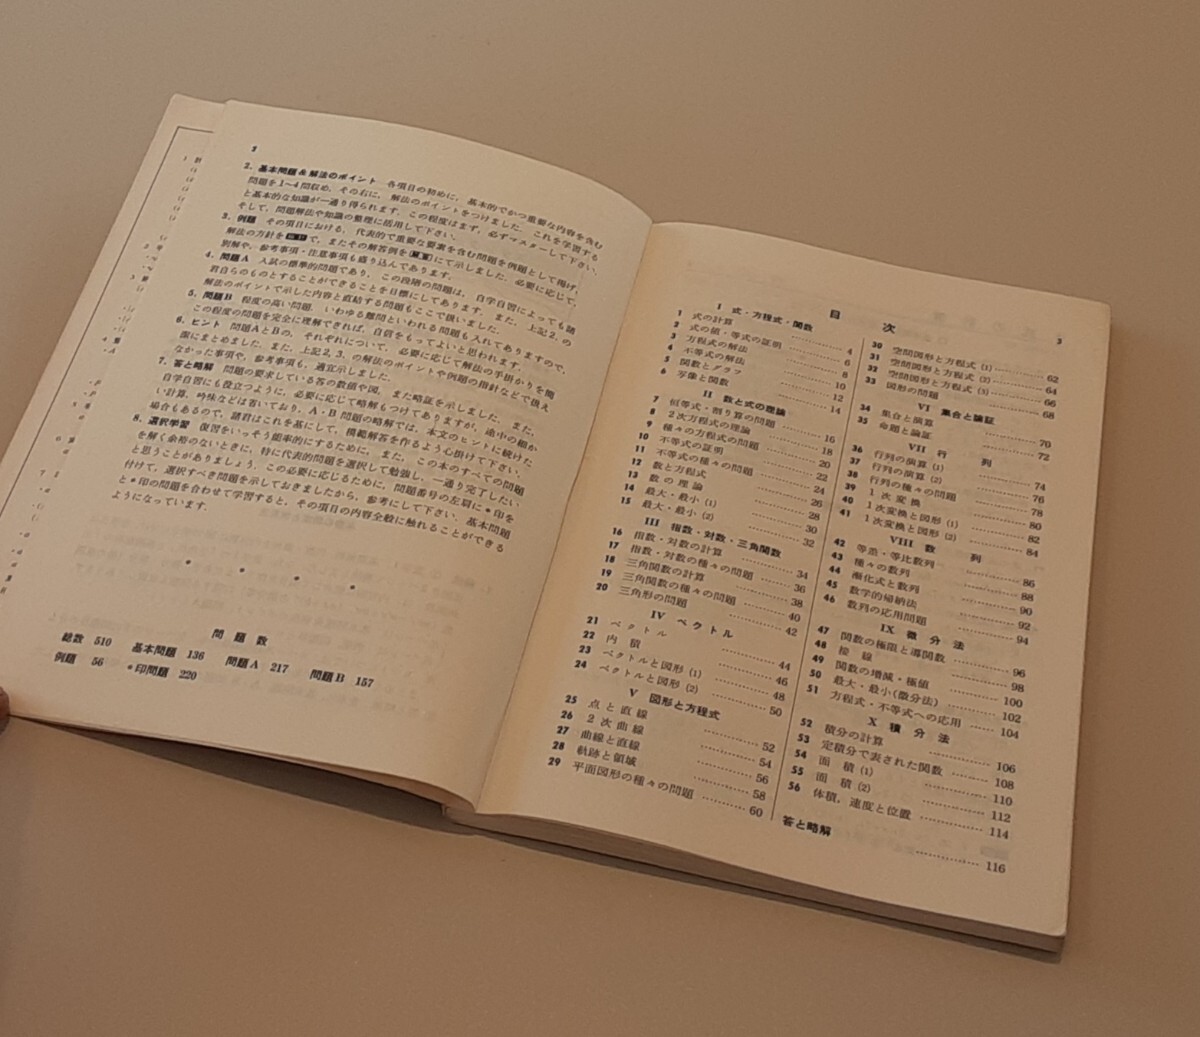 2
2. 基本問題&解法のポイント 各項目の初めに，基本的でかつ重要な内容を含む
問題を1〜4問収め，その右に，解法のポイントをつけました．これを学習する
と基本的な知識が一通り得られます．この程度はまず，必ずマスターして下さい．
そして，問題解法や知識の整理に活用して下さい．
3. 例題 その項目における，代表的で重要な要素を含む問題を例題として掲げ，
解法の方針を で，またその解答例を にて示しました．必要に応じて，
別解や，参考事項・注意事項も盛り込んであります．
4. 問題A 入試の標準的問題であり，この段階の問題は，自学自習によっても諸
君自らのものとすることができることを目標にしてあります．また，上記2，の
解法のポイントで示した内容と直結する問題もここで扱いました．
5. 問題B 程度の高い問題，いわゆる難問といわれる問題も入れてありますので，
この程度の問題を完全に理解できれば，自信をもってよいと思われます．
6. ヒント 問題AとBの，それぞれについて，必要に応じて解法の手掛かりを簡
潔にまとめました．また，上記2, 3, の解法のポイントや例題の指針などで扱え
なかった事項や，参考事項も，適宜示しました．
7. 答と略解 問題の要求している答の数値や図，また略証を示しました．また，
自学自習にも役立つように，必要に応じて略解もつけてありますが，途中の細か
い計算，吟味などは省いており，A・B問題の略解では，本文のヒントに続けた
場合もあるので，諸君はこれを基にして，模範解答を作るよう心掛けて下さい．
8. 選択学習 復習をいっそう能率的にするために，また，この本のすべての問題
を解く余裕のないときに，特に代表的問題を選択して勉強し，一通り完了したい
と思うことがありましょう．この必要に応じるために，問題番号の左肩に*印を
付けて，選択すべき問題を示しておきましたから，参考にして下さい．基本問題
と*印の問題を合わせて学習すると，その項目の内容全般に触れることができる
ようになっています．
* * * *
問題数
総数 510 基本問題 136 問題A 217 問題B 157
例題 56 *印問題 220
3
目 次
I 式・方程式・関数
1 式の計算 4
2 式の値・等式の証明 6
3 方程式の解法 8
4 不等式の解法 10
5 関数とグラフ 12
6 写像と関数 14
II 数と式の理論
7 恒等式・割り算の問題 16
8 2次方程式の理論 18
9 種々の方程式の問題 20
10 不等式の証明 22
11 不等式の種々の問題 24
12 数と方程式 26
13 数の理論 28
14 最大・最小 (1) 30
15 最大・最小 (2) 32
III 指数・対数・三角関数
16 指数・対数の計算 34
17 指数・対数の種々の問題 36
18 三角関数の計算 38
19 三角関数の種々の問題 40
20 三角形の問題 42
IV ベクトル
21 ベクトル 44
22 内積 46
23 ベクトルと図形 (1) 48
24 ベクトルと図形 (2) 50
V 図形と方程式
25 点と直線 52
26 2次曲線 54
27 曲線と直線 56
28 軌跡と領域 58
29 平面図形の種々の問題 60
30 空間図形と方程式 (1) 62
31 空間図形と方程式 (2) 64
32 空間図形と方程式 (3) 66
33 図形の問題 68
VI 集合と論証
34 集合と演算 70
35 命題と論証 72
VII 行列
36 行列の演算 (1) 74
37 行列の演算 (2) 76
38 行列の種々の問題 78
39 1次変換 80
40 1次変換と図形 (1) 82
41 1次変換と図形 (2) 84
VIII 数列
42 等差・等比数列 86
43 種々の数列 88
44 漸化式と数列 90
45 数学的帰納法 92
46 数列の応用問題 94
IX 微分法
47 関数の極限と導関数 96
48 接線 98
49 関数の増減・極値 100
50 最大・最小(微分法) 102
51 方程式・不等式への応用 104
X 積分法
52 積分の計算 106
53 定積分で表された関数 108
54 面積 (1) 110
55 面積 (2) 112
56 体積，速度と位置 114
答と略解 116